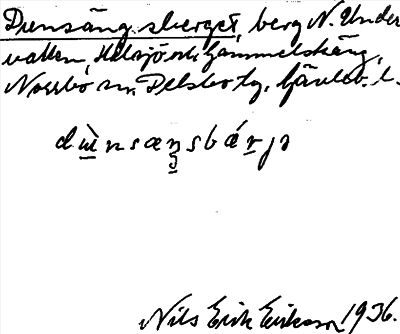 Dunsängsberget, berg N. Under
vallen, Helsjö och Gammelsäng,
Norrbo sn, Delsbo tg. Gävleb. l.
dùnsæŋsbárjə
Nils Erik Eriksson 1936.